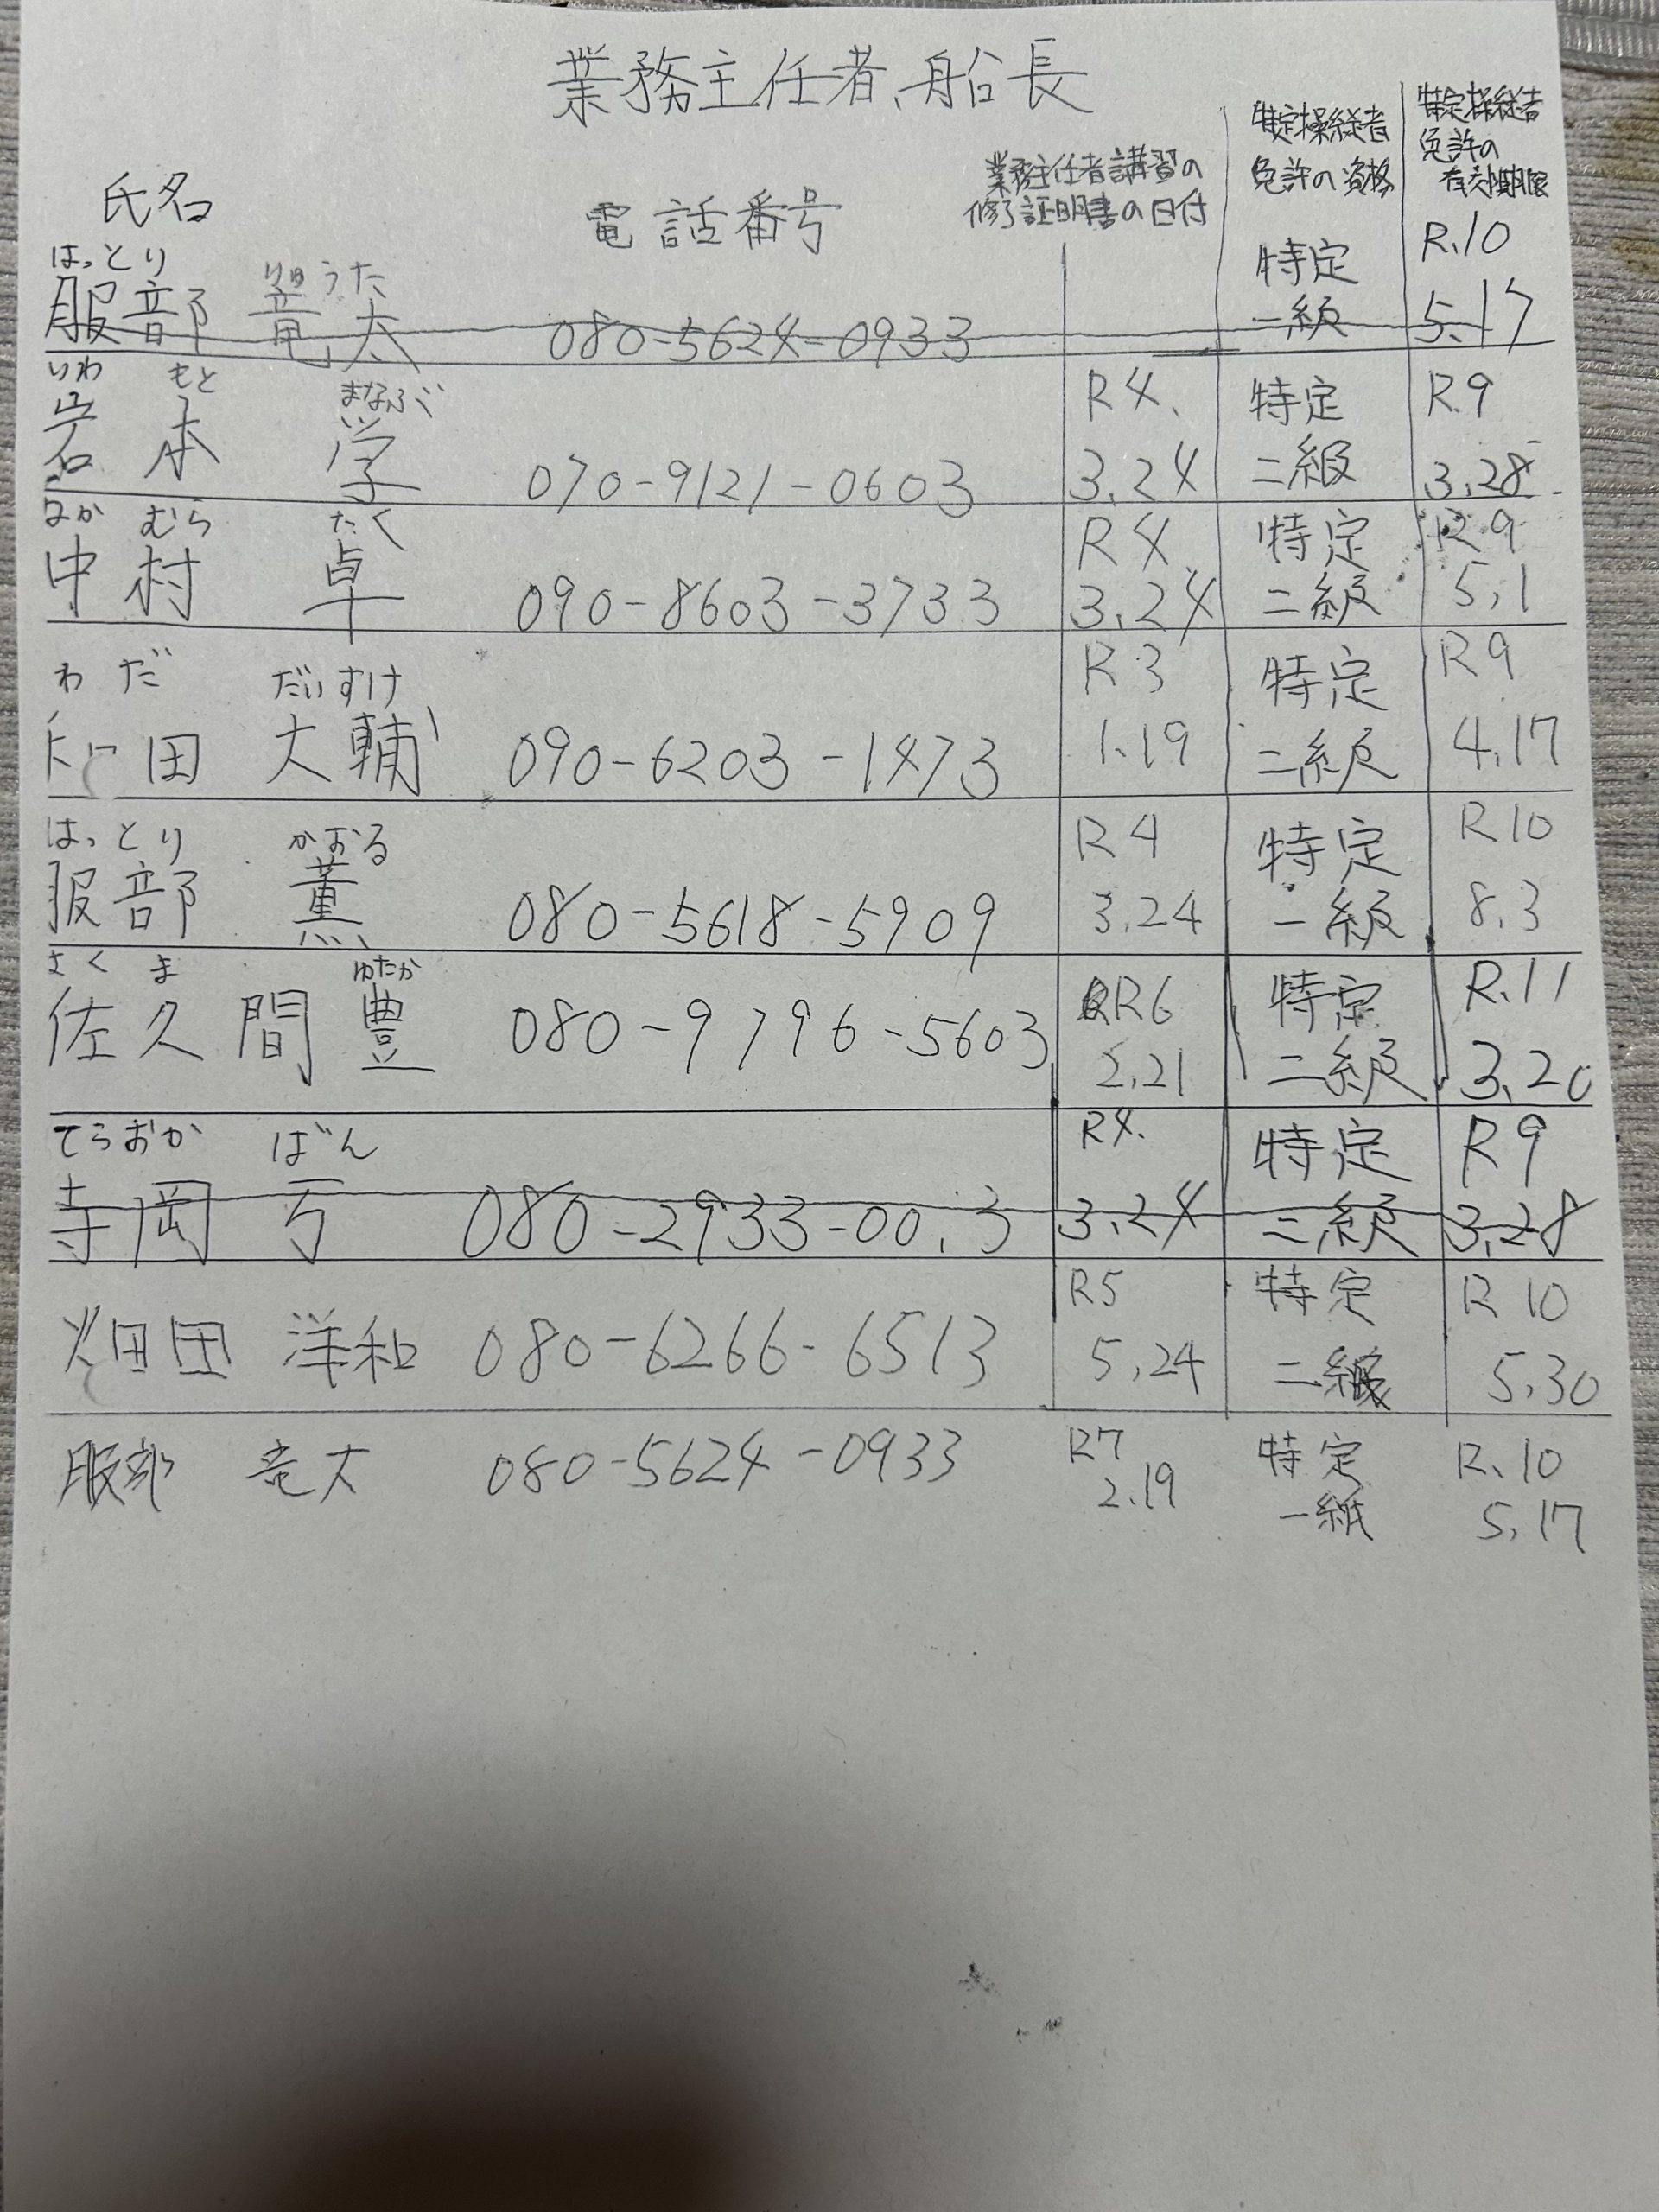 業務主任者、船長
氏名
電話番号
業務主任者講習の
修了証明書の日付
特定操縦者
免許の資格
特定操縦者
免許の
有効期限
はっとり りゅうた
服部 竜太 080-5624-0933
特定
一級
R.10
5.17
いわ もと まなぶ
岩本 学 070-9121-0603
R4.
3.24
特定
二級
R.9
3.28
なか むら たく
中村 卓 090-8603-3733
R4.
3.24
特定
二級
R9
5.1
わだ だいすけ
和田 大輔 090-6203-1473
R3
1.19
特定
二級
R9
4.17
はっとり かおる
服部 薫 080-5618-5909
R4
3.24
特定
一級
R10
8.3
さくま ゆたか
佐久間 豊 080-9796-5603
R6
2.21
特定
二級
R.11
3.20
てらおか ばん
寺岡 080-2933-00.3
R4.
3.24
特定
二級
R9
3.28
畑田 洋和 080-6266-6513
R5
5.24
特定
二級
R10
5.30
服部 竜太 080-5624-0933
R7
2.19
特定
一紙
R.10
5.17